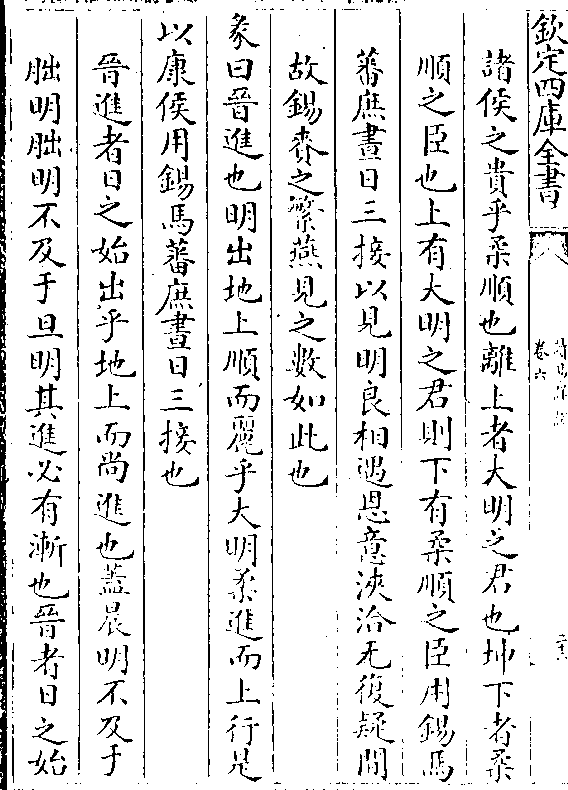 欽定四庫全書
卷六
諸侯之貴乎柔順也離上者大明之君也坤下者柔
順之臣也上有大明之君則下有柔順之臣用錫馬
蕃庶晝日三接以見明良相遇恩意浹洽无復疑間
故錫賚之繁燕見之數如此也
彖曰晉進也明出地上順而麗乎大明柔進而上行是
以康侯用錫馬蕃庶晝日三接也
晉進者日之始出乎地上而尚進也蓋晨明不及于
朏明朏明不及于旦明其進必有漸也晉者日之始